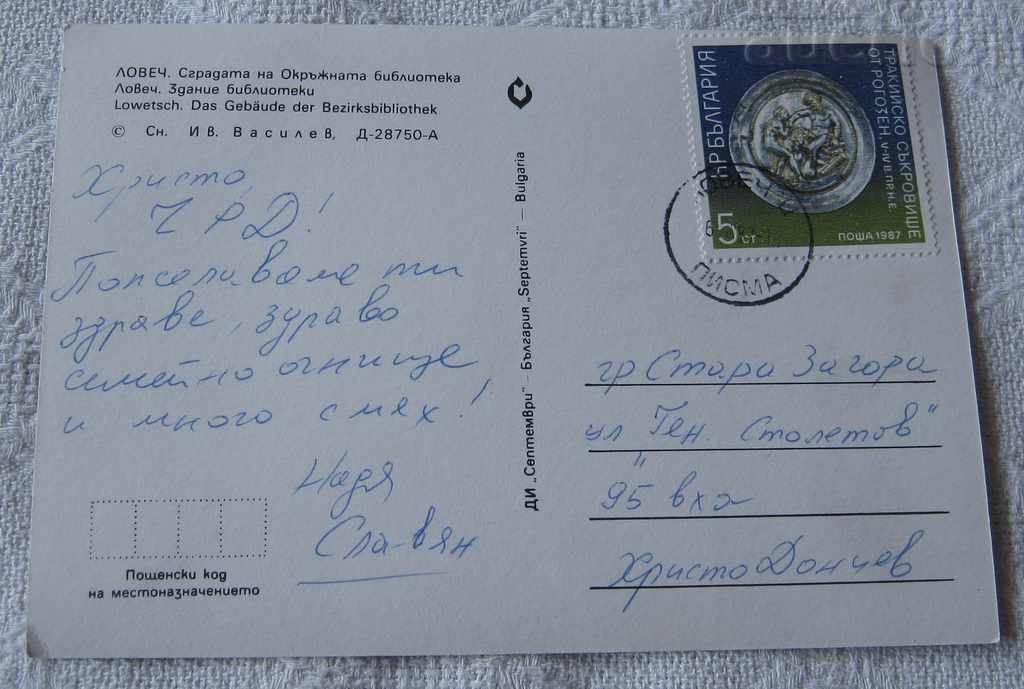 ЛОВЕЧ. Сградата на Окръжната библиотека
Ловеч. Здание библиотеки
Lowetsch. Das Gebäude der Bezirksbibliothek
© Сн. Ив. Василев, Д-28750-А
Христо,
Ч Р Д!
Пожелаваме ти
здраве, здраво
семейно огнище
и много смях!
Надя
Славян
Пощенски код
на местоназначението
ДИ „Септември" – България „Septemvri" – Bulgaria
НР БЪЛГАРИЯ
ТРАКИЙСКО СЪКРОВИЩЕ
ОТ РОГОЗЕН, V-IV В. ПР. Н. Е.
5 СТ
ПОЩА 1987
ЛОВЕЧ
ПИСМА
гр Стара Загора
ул "Ген. Столетов"
95 вх а
Христо Дончев